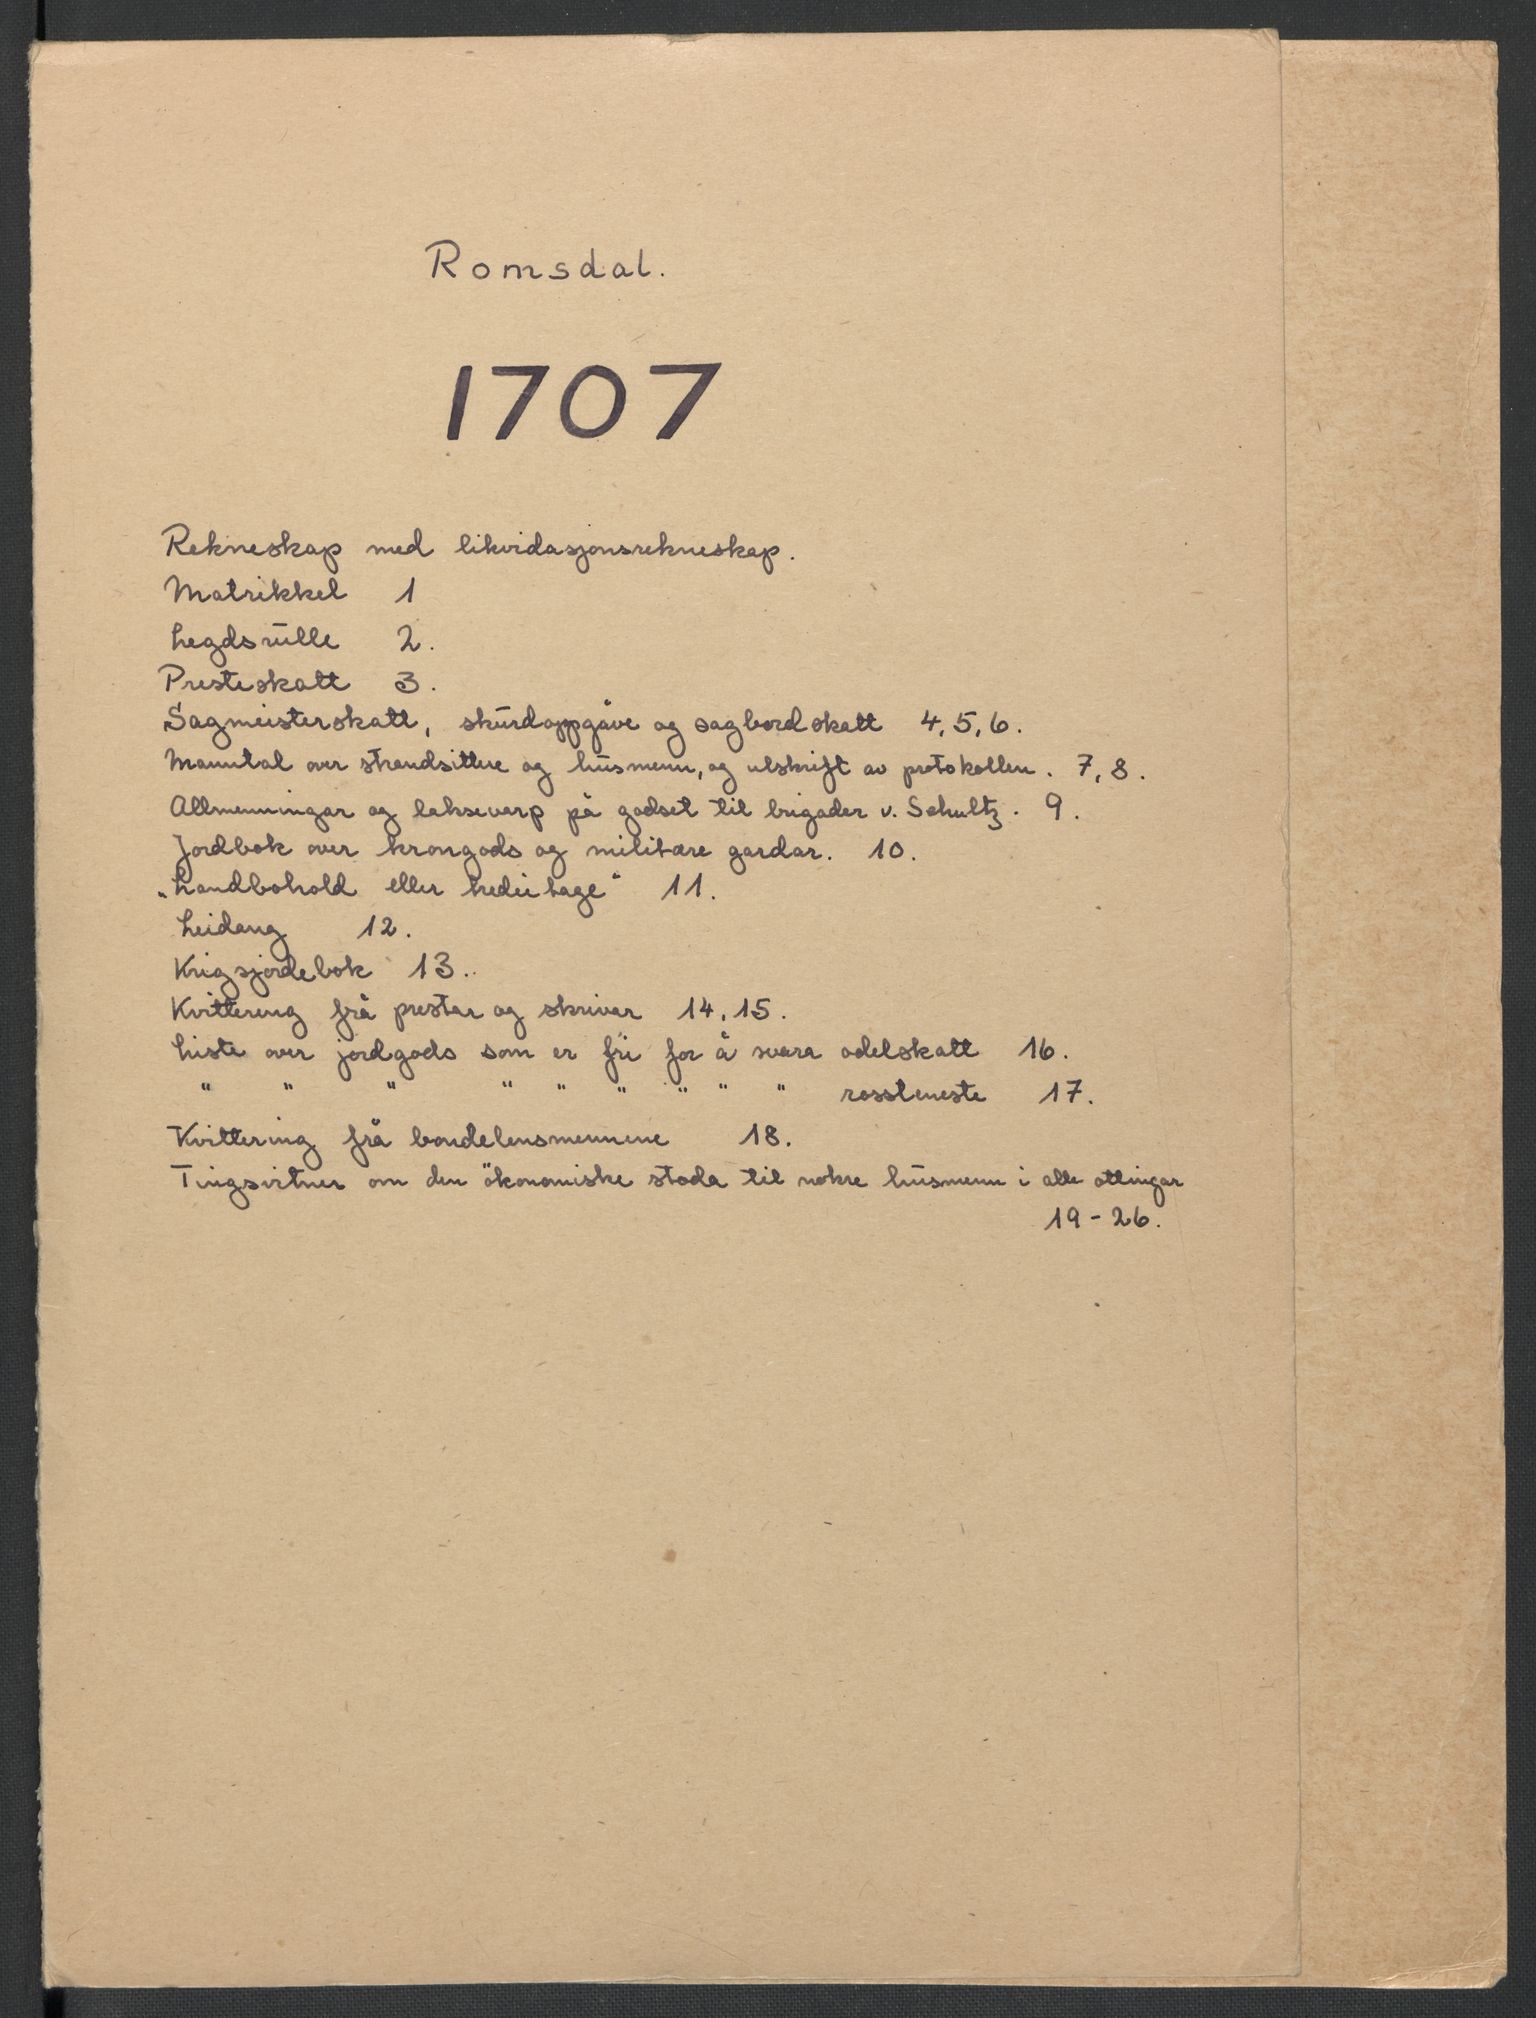 Romsdal.
1707
Rekneskap med likvidasjonsrekneskap.
Matrikkel 1
Legdsrulle 2.
Presteskatt 3.
Sagmeisterskatt, skurdoppgåve og sagbordskatt 4, 5, 6.
Manntal over strandsittere og husmenn, og utskrift av protokollen. 7, 8.
Allmenningar og laksevarp på godset til brigader v. Schultz. 9.
Jordbok over krongods og militære gardar. 10.
„Landbohold eller herlighage“ 11.
Leidang 12.
Krigsjordebok 13.
Kvittering frå prestar og skrivar 14, 15.
Liste over jordgods som er fri for å svara odelskatt 16.
" " " " " " " " " rossteneste 17.
Kvittering frå bondelensmennene 18.
Tingsvitner om den ökonomiske stoda til nokre husmenn i alle ottingar
19-26.